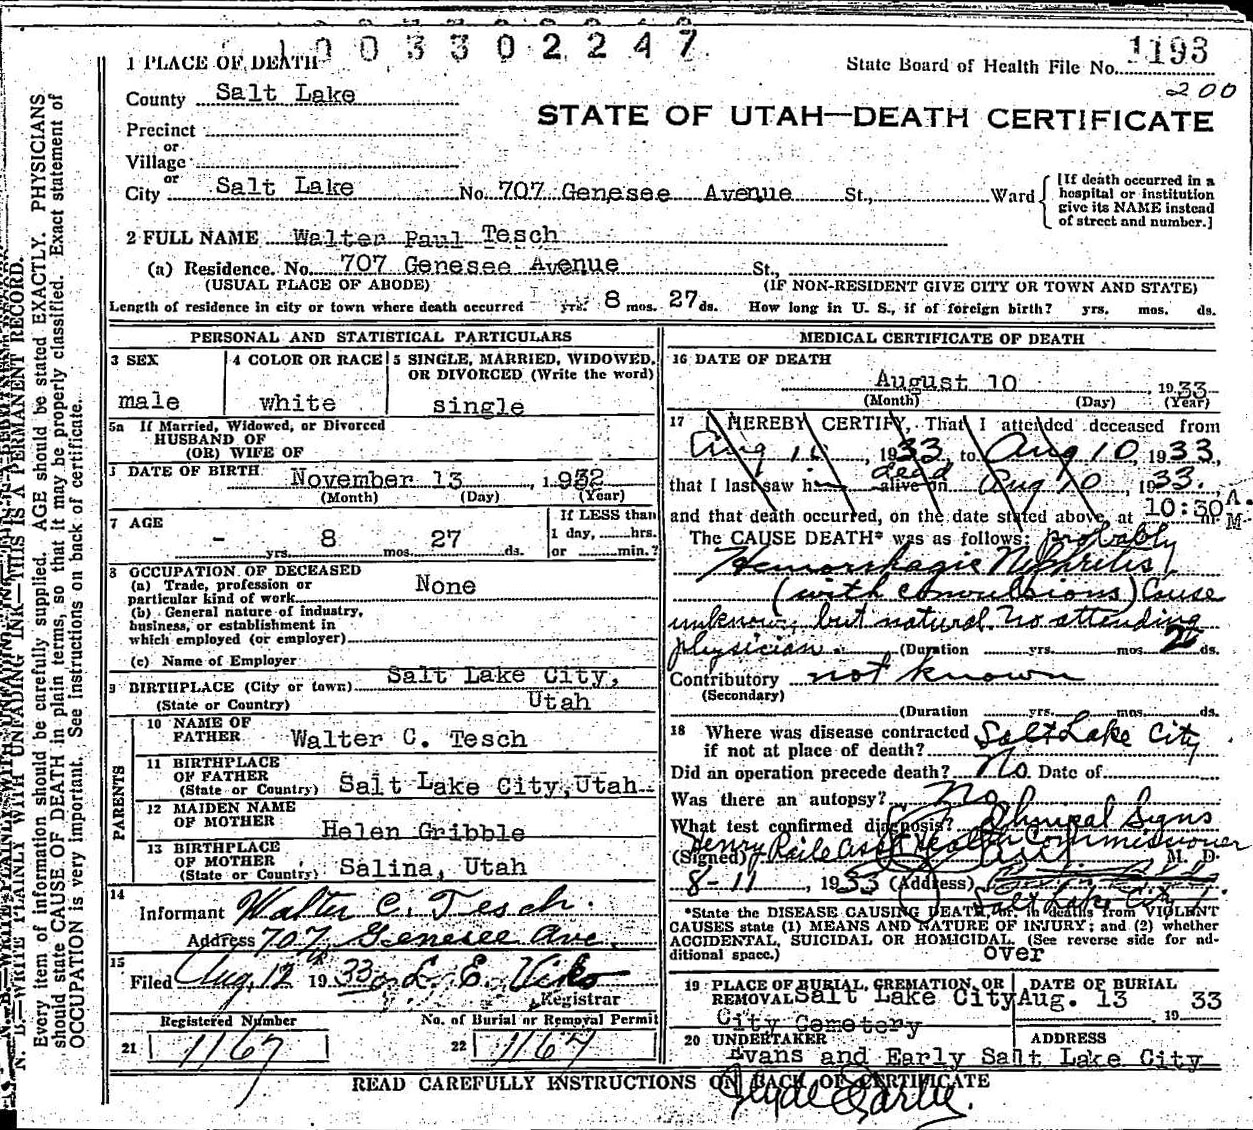 1003302247
1193
1 PLACE OF DEATH
State Board of Health File No.
200
County Salt Lake
STATE OF UTAH—DEATH CERTIFICATE
Precinct
or
Village
or
City Salt Lake No. 707 Genesee Avenue St., Ward
[If death occurred in a hospital or institution give its NAME instead of street and number.]
2 FULL NAME Walter Paul Tesch
(a) Residence. No. 707 Genesee Avenue St.,
(USUAL PLACE OF ABODE) (IF NON-RESIDENT GIVE CITY OR TOWN AND STATE)
Length of residence in city or town where death occurred yrs. 8 mos. 27 ds. How long in U. S., if of foreign birth? yrs. mos. ds.
PERSONAL AND STATISTICAL PARTICULARS
3 SEX
male
4 COLOR OR RACE
white
5 SINGLE, MARRIED, WIDOWED,
OR DIVORCED (Write the word)
single
5a If Married, Widowed, or Divorced
HUSBAND OF
(OR) WIFE OF
DATE OF BIRTH November 13, 1932
(Month) (Day) (Year)
7 AGE
- yrs. 8 mos. 27 ds.
If LESS than
1 day, hrs.
or min.?
8 OCCUPATION OF DECEASED
(a) Trade, profession or
particular kind of work None
(b) General nature of industry,
business, or establishment in
which employed (or employer)
(c) Name of Employer
9 BIRTHPLACE (City or town) Salt Lake City,
(State or Country) Utah
PARENTS
10 NAME OF
FATHER Walter C. Tesch
11 BIRTHPLACE
OF FATHER
(State or Country) Salt Lake City, Utah
12 MAIDEN NAME
OF MOTHER Helen Gribble
13 BIRTHPLACE
OF MOTHER
(State or Country) Salina, Utah
14
Informant Walter C. Tesch
Address 707 Genesee Ave.
15
Filed Aug, 12 1933 L. E. Viko
Registrar
Registered Number
21 1167
No. of Burial or Removal Permit
22 1167
MEDICAL CERTIFICATE OF DEATH
16 DATE OF DEATH
August 10 1933
(Month) (Day) (Year)
17 I HEREBY CERTIFY, That I attended deceased from
Aug 10, 1933, to Aug 10, 1933,
that I last saw him alive on dead Aug 10, 1933.
and that death occurred, on the date stated above, at 10:30 A. M.
The CAUSE DEATH* was as follows: probably
Hemorrhagic Nephritis
(with convulsions) Cause
unknown, but natural. No attending
physician. (Duration yrs. mos. ds.
Contributory not known
(Secondary)
(Duration yrs. mos. ds.
18 Where was disease contracted
if not at place of death? Salt Lake City
Did an operation precede death? No Date of
Was there an autopsy? No
What test confirmed diagnosis? Physical Signs
Henry Raile Asst Health Commissioner
(Signed) M. D.
8-11, 1933 (Address)
Salt Lake City
*State the DISEASE CAUSING DEATH, or, in deaths from VIOLENT
CAUSES state (1) MEANS AND NATURE OF INJURY; and (2) whether
ACCIDENTAL, SUICIDAL OR HOMICIDAL. (See reverse side for additional space.)
over
19 PLACE OF BURIAL, CREMATION, OR
REMOVAL Salt Lake City
City Cemetery
DATE OF BURIAL
Aug. 13 19 33
20 UNDERTAKER
Evans and Early
ADDRESS
Salt Lake City
READ CAREFULLY INSTRUCTIONS ON BACK OF CERTIFICATE
N. B.—WRITE PLAINLY WITH UNFADING INK—THIS IS A PERMANENT RECORD.
Every item of information should be carefully supplied. AGE should be stated EXACTLY. PHYSICIANS
should state CAUSE OF DEATH in plain terms, so that it may be properly classified. Exact statement of
OCCUPATION is very important. See instructions on back of certificate.